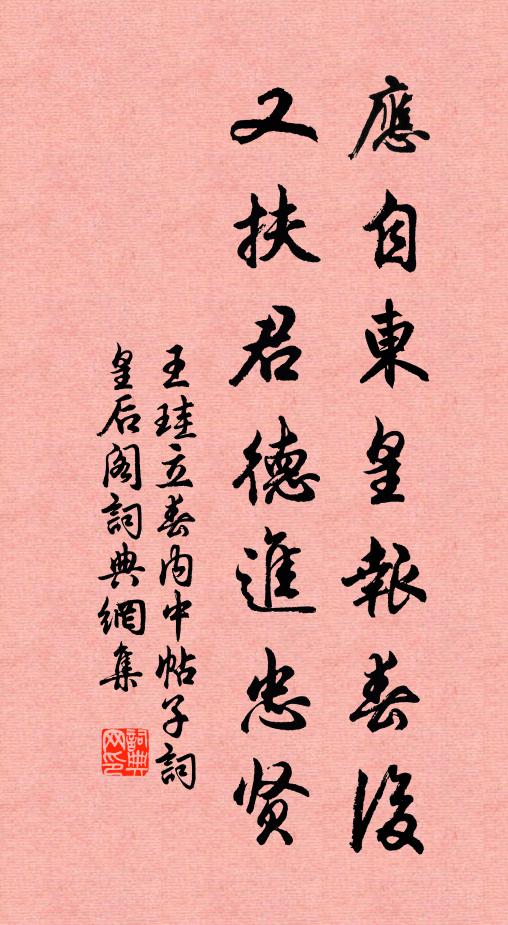 應自東皇報春後
又扶君德進忠贤
王珪立春内中帖子詞
皇后阁詞典網集
詞典
网印